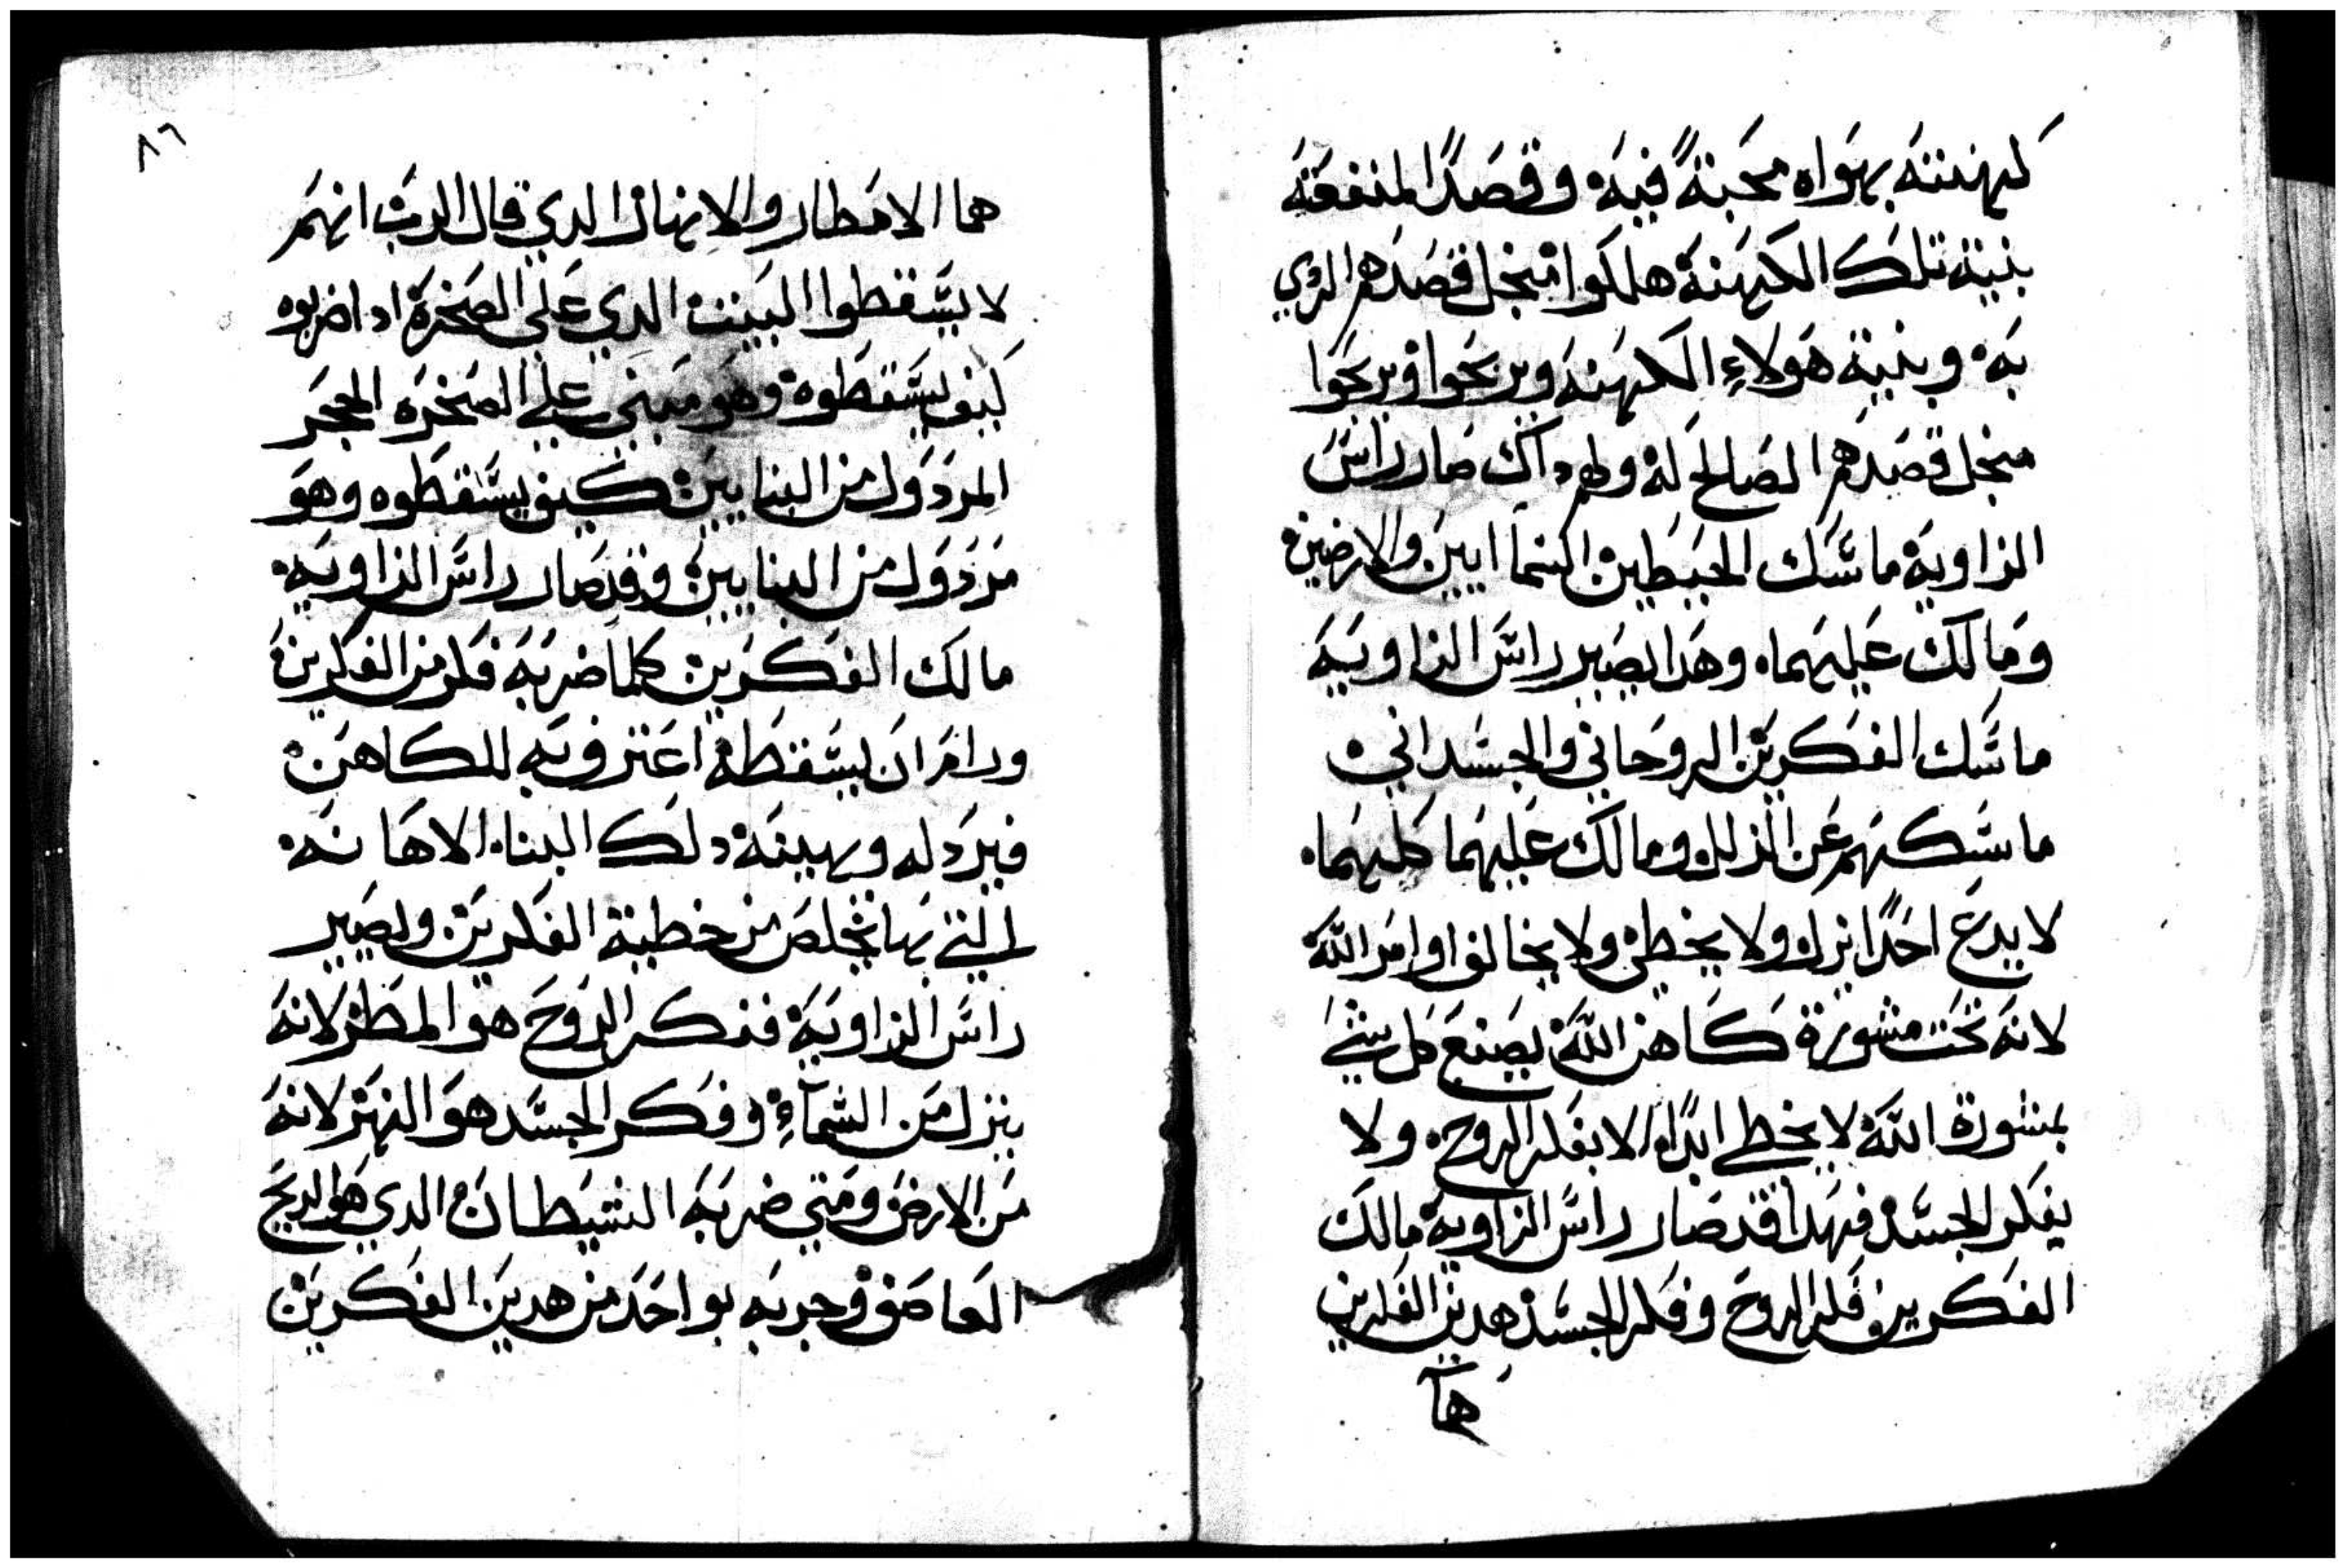 كهنته بهواه محبةً فيه وقصدًا لمنفعته
بنية تلك الكهنة هلكوا منجل قصدهم الردي
به وبنية هولاءِ الكهنه ويربحوا ويربحوا
منجل قصدهم الصالح له ولهم داك صار راس
الزاويه ماسك الحيطين السماايين والارضين
ومالك عليهما وهدا يصير راس الزاويه
ماسك الفكرين الروحاني والجسداني
ماسكهم عن الزلل ومالك عليهما كليهما
لا يدع احدًا يزل ولا يخطي ولا يخالف اوامر الله
لانه تحت مشورة كاهن الله يصنع كل شي
بمشورة الله لا يخطي ابدًا لا بفكر الروح ولا
بفكر الجسد فهدا قد صار راس الزاويه مالك
الفكرين فكر الروح وفكر الجسد هدين الفكرين
هما
٨٦
هما الامطار والانهار الدي قال الرب انهم
لا يسقطوا البيت الدي على الصخرة ادا ضربوه
كيف يسقطوه وهو مبني على الصخره الحجر
المردول من البنايين كيف يسقطوه وهو
مردول من البنايين وقد صار راس الزاويه
مالك الفكرين كلما ضربه فكر من الفكرين
ورام ان يسقطه اعترف به للكاهن
فيردله ويهينه دلك البناء الاهانه
لـكي بها يخلص من خطية الفكرين ويصير
راس الزاويه ففكر الروح هو المطر لانه
ينزل من السماءِ وفكر الجسد هو النهر لانه
من الارض ومتي ضربه الشيطان الدي هو الريح
العاصف وجربه بواحد من هدين الفكرين